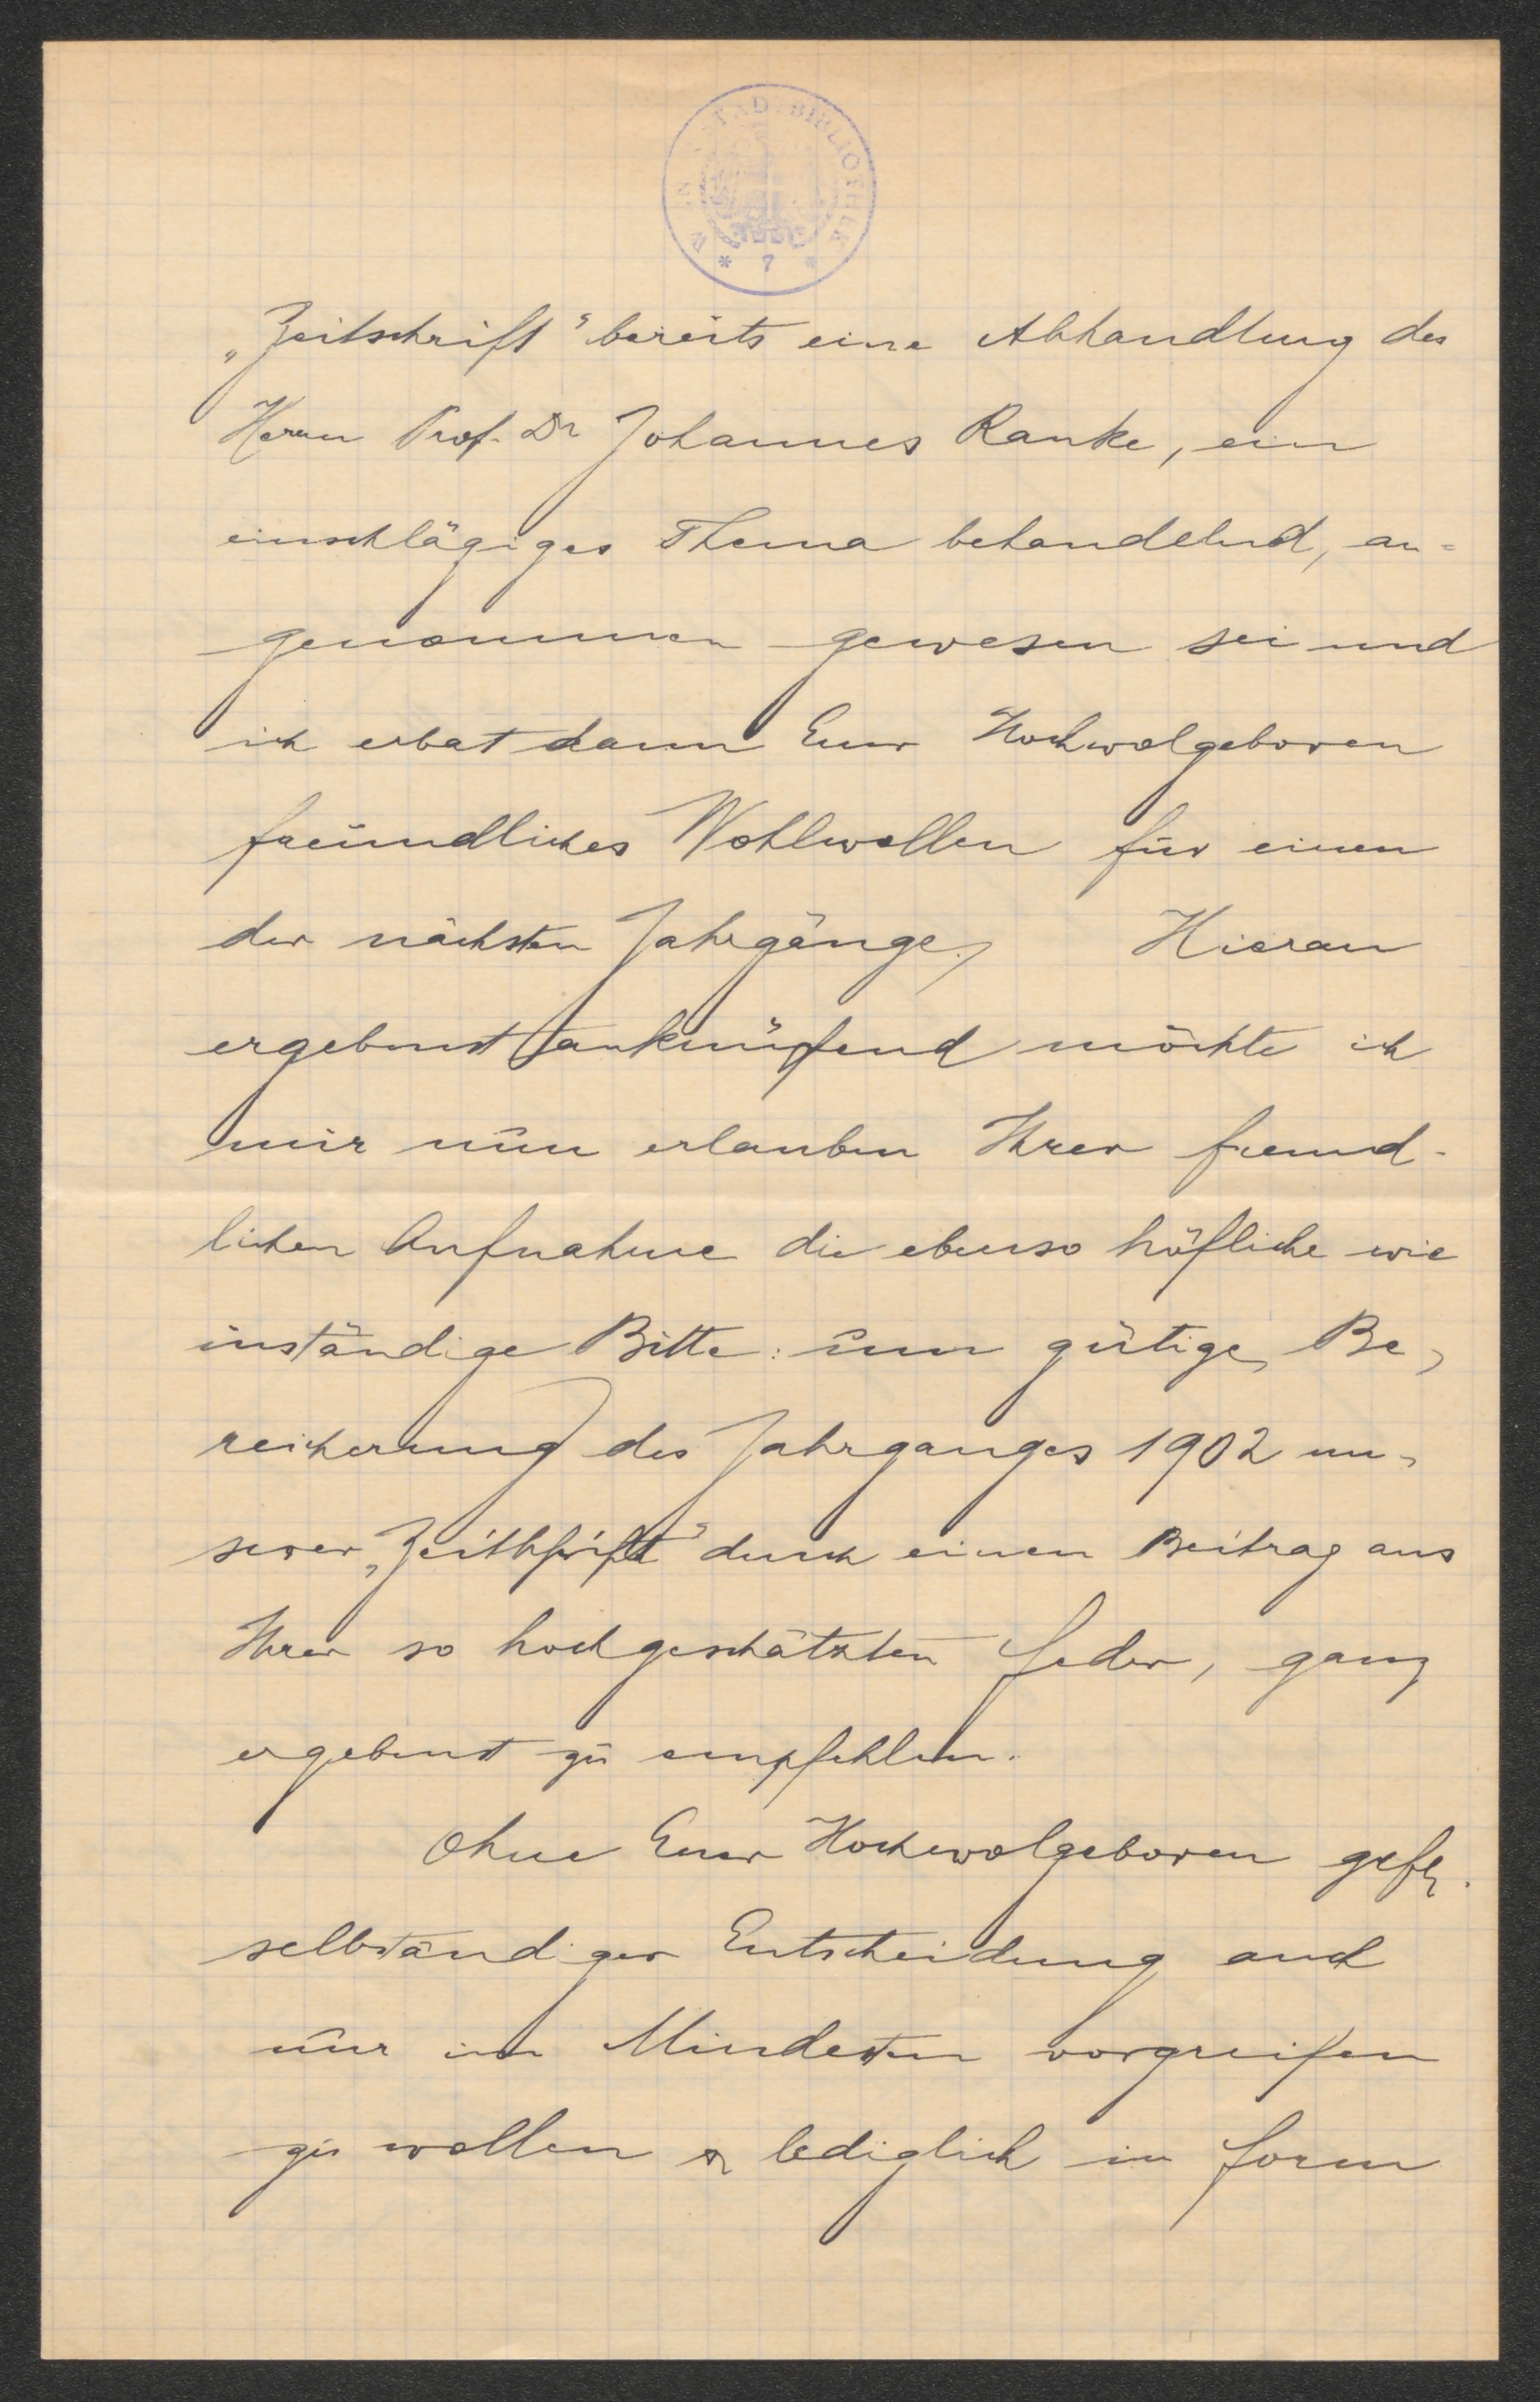 WIENER STADTBIBLIOTHEK
* 7 *
„Zeitschrift" bereits eine Abhandlung des
Herrn Prof. Dr Johannes Ranke, ein
einschlägiges Thema behandelnd, an=
genommen gewesen sei und
ich erbat dann Euer Hochwolgeboren
freundliches Wohlwollen für einen
der nächsten Jahrgänge. Hieran
ergebenst anknüpfend möchte ich
mir nun erlauben Ihrer freund-
lichen Aufnahme die ebenso höfliche wie
inständige Bitte: um gütige Be-
reicherung des Jahrganges 1902 un-
serer „Zeitschrift" durch einen Beitrag aus
Ihrer so hochgeschätzten Feder, ganz
ergebenst zu empfehlen.
Ohne Euer Hochwolgeboren gefl.
selbständiger Entscheidung auch
nur im Mindesten vorgreifen
zu wollen & lediglich in Form